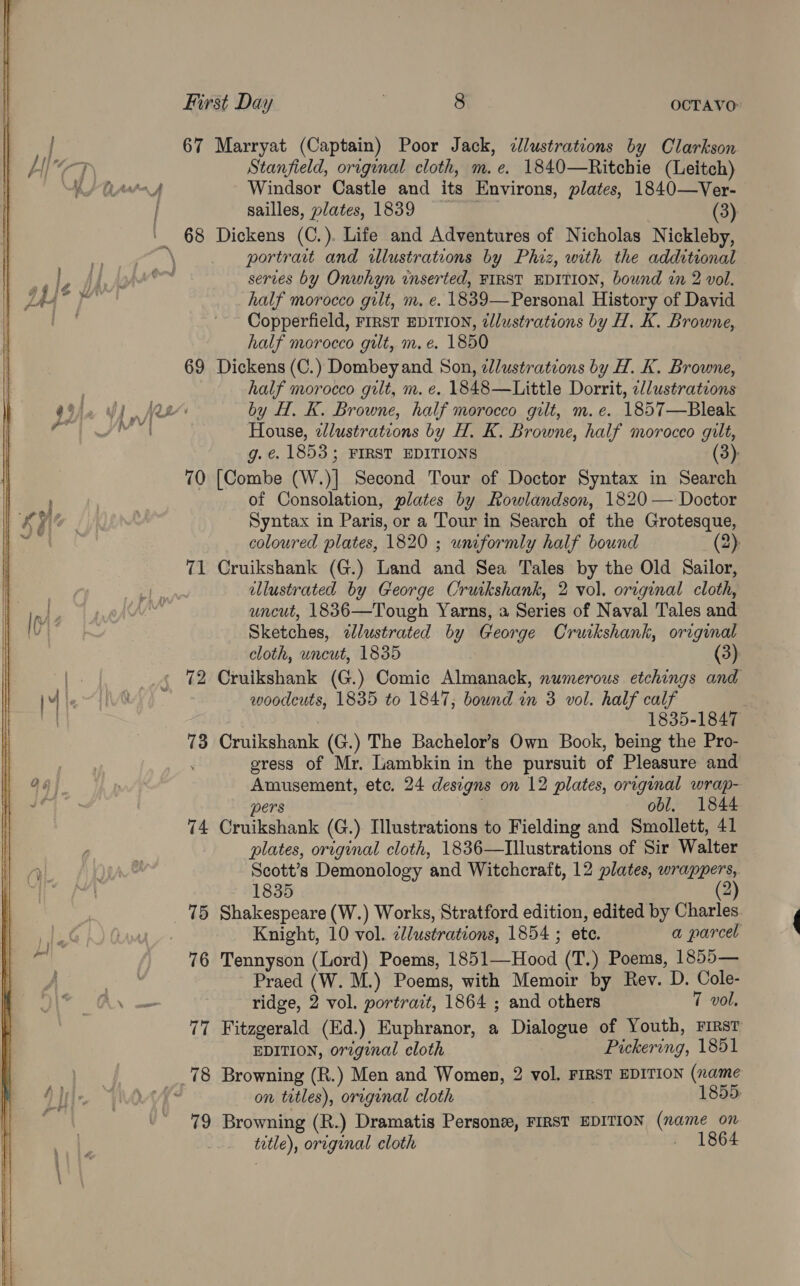 First Day 8 OCTAVO
67 Marryat (Captain) Poor Jack, illustrations by Clarkson
Stanfield, original cloth, m. e. 1840—Ritchie (Leitch)
Windsor Castle and its Environs, plates, 1840—Ver-
sailles, plates, 1839 (3)
68 Dickens (C.) Life and Adventures of Nicholas Nickleby,
portrait and illustrations by Phiz, with the additional
series by Onwhyn inserted, FIRST EDITION, bound in 2 vol.
half morocco gilt, m. e. 1839—Personal History of David
Copperfield, FIRST EDITION, illustrations by H. K. Browne,
half morocco gilt, m. e. 1850
69 Dickens (C.) Dombey and Son, illustrations by H. K. Browne,
half morocco gilt, m. e. 1848—Little Dorrit, illustrations
by H. K. Browne, half morocco gilt, m. e. 1857—Bleak
House, illustrations by H. K. Browne, half morocco gilt,
g. e. 1853; FIRST EDITIONS (3)
70 [Combe (W.)] Second Tour of Doctor Syntax in Search
of Consolation, plates by Rowlandson, 1820—Doctor
Syntax in Paris, or a Tour in Search of the Grotesque,
coloured plates, 1820; uniformly half bound (2)
71 Cruikshank (G.) Land and Sea Tales by the Old Sailor,
illustrated by George Cruikshank, 2 vol. original cloth,
uncut, 1836—Tough Yarns, a Series of Naval Tales and
Sketches, illustrated by George Cruikshank, original
cloth, uncut, 1835 (3)
72 Cruikshank (G.) Comic Almanack, numerous etchings and
woodcuts, 1835 to 1847, bound in 3 vol. half calf
1835-1847
73 Cruikshank (G.) The Bachelor's Own Book, being the Pro-
gress of Mr. Lambkin in the pursuit of Pleasure and
Amusement, etc. 24 designs on 12 plates, original wrap-
pers obl. 1844
74 Cruikshank (G.) Illustrations to Fielding and Smollett, 41
plates, original cloth, 1836—Illustrations of Sir Walter
Scott's Demonology and Witchcraft, 12 plates, wrappers,
1835 (2)
75 Shakespeare (W.) Works, Stratford edition, edited by Charles
Knight, 10 vol. illustrations, 1854; etc. a parcel
76 Tennyson (Lord) Poems, 1851—Hood (T.) Poems, 1855—
Praed (W. M.) Poems, with Memoir by Rev. D. Cole-
ridge, 2 vol. portrait, 1864; and others 7 vol.
77 Fitzgerald (Ed.) Euphranor, a Dialogue of Youth, FIRST
EDITION, original cloth Pickering, 1851
78 Browning (R.) Men and Women, 2 vol. FIRST EDITION (name
on titles), original cloth 1855
79 Browning (R.) Dramatis Personæ, FIRST EDITION (name on
title), original cloth 1864